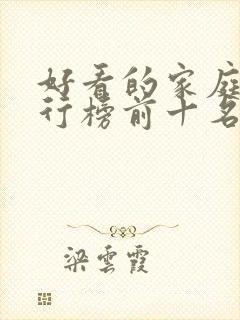 好看的家庭
行榜前十名
梁雲霞